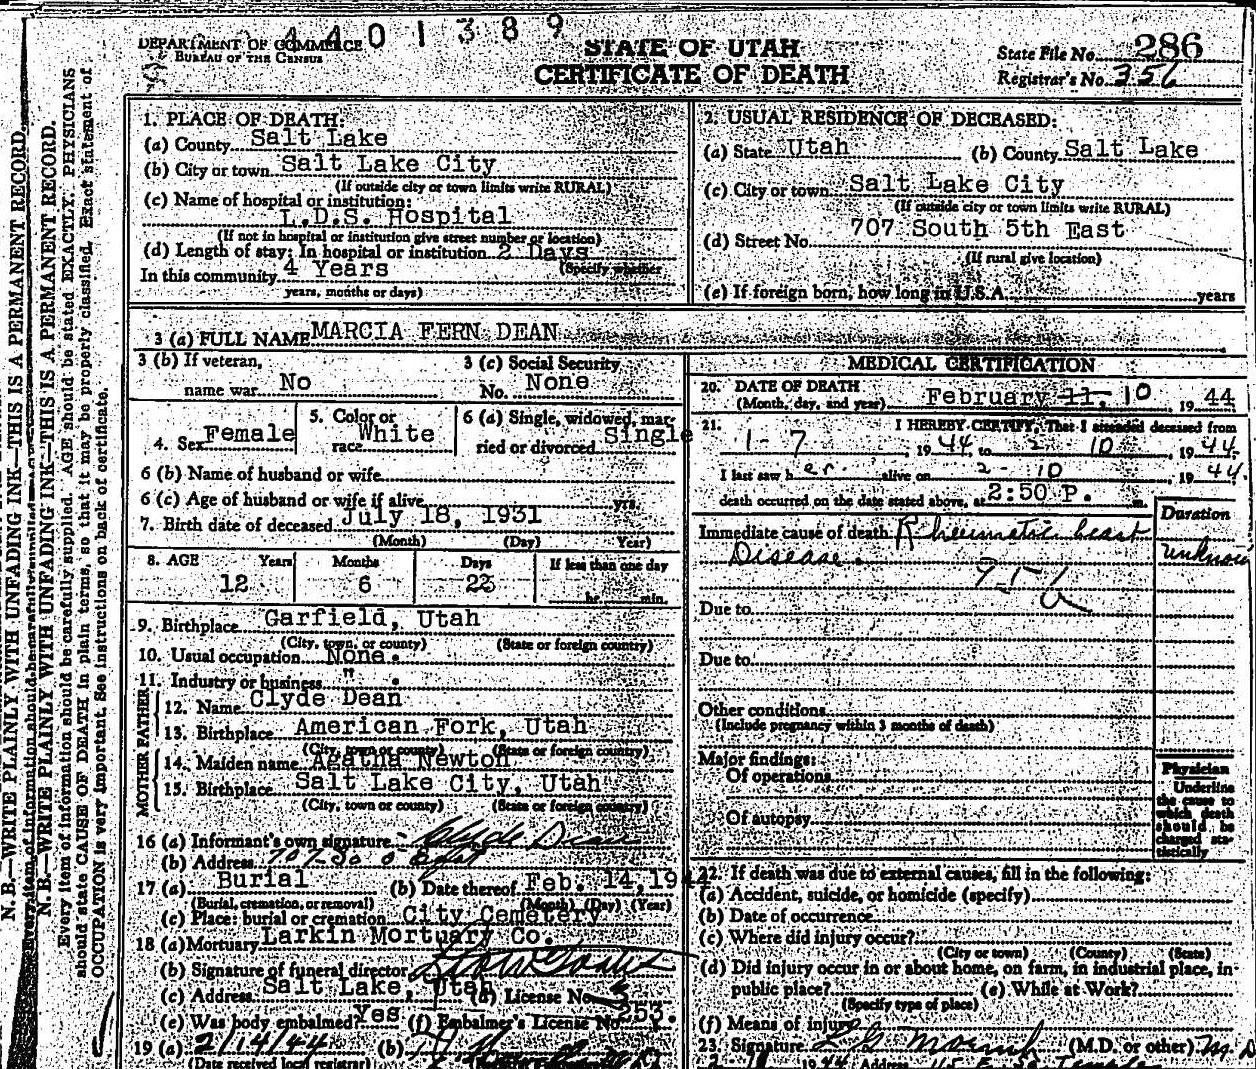 4401389
DEPARTMENT OF COMMERCE
BUREAU OF THE CENSUS
STATE OF UTAH
CERTIFICATE OF DEATH
State File No. 286
Registrar's No. 356
N. B.—WRITE PLAINLY WITH UNFADING INK—THIS IS A PERMANENT RECORD.
N. B.—WRITE PLAINLY WITH UNFADING INK—THIS IS A PERMANENT RECORD.
Every item of information should be carefully supplied. AGE should be stated EXACTLY. PHYSICIANS
should state CAUSE OF DEATH in plain terms, so that it may be properly classified. Exact statement of
OCCUPATION is very important. See instructions on back of certificate.
1. PLACE OF DEATH:
(a) County Salt Lake
(b) City or town Salt Lake City
(If outside city or town limits write RURAL)
(c) Name of hospital or institution:
L.D.S. Hospital
(If not in hospital or institution give street number or location)
(d) Length of stay: In hospital or institution 2 Days
(Specify whether
In this community 4 Years
years, months or days)
2. USUAL RESIDENCE OF DECEASED:
(a) State Utah (b) County Salt Lake
(c) City or town Salt Lake City
(If outside city or town limits write RURAL)
(d) Street No. 707 South 5th East
(If rural give location)
(e) If foreign born, how long in U.S.A. years
3 (a) FULL NAME MARCIA FERN DEAN
3 (b) If veteran,
name war No
3 (c) Social Security
No. None
4. Sex Female
5. Color or
race White
6 (a) Single, widowed, mar-
ried or divorced Single
6 (b) Name of husband or wife
6 (c) Age of husband or wife if alive yrs.
7. Birth date of deceased July 18, 1931
(Month) (Day) Year)
8. AGE Years Months Days If less than one day
12 6 23 hr. min.
9. Birthplace Garfield, Utah
(City, town, or county) (State or foreign country)
10. Usual occupation None.
11. Industry or business " .
FATHER
12. Name Clyde Dean
13. Birthplace American Fork, Utah
(City, town or county) (State or foreign country)
MOTHER
14. Maiden name Agatha Newton
15. Birthplace Salt Lake City, Utah
(City, town or county) (State or foreign country)
16 (a) Informant's own signature Clyde Dean
(b) Address 707 So 5 East
17 (a) Burial (b) Date thereof Feb. 14, 1944
(Burial, cremation, or removal) (Month) (Day) (Year)
(c) Place: burial or cremation City Cemetery
18 (a) Mortuary Larkin Mortuary Co.
(b) Signature of funeral director
(c) Address Salt Lake, Utah (d) License No.
(e) Was body embalmed? Yes (f) Embalmer's License No. 253.
19 (a) 2/14/44 (b)
(Date received local registrar)
MEDICAL CERTIFICATION
20. DATE OF DEATH
(Month, day, and year) February 11, 10, 1944
21. I HEREBY CERTIFY, That I attended deceased from
1-7, 1944, to 2-10, 1944.
I last saw her alive on 2-10, 1944.
death occurred on the date stated above, at 2:50 P. m.
Duration
Immediate cause of death Rheumatic heart
Disease. unknown
95-b
Due to
Due to
Other conditions
(Include pregnancy within 3 months of death)
Major findings:
Of operations
Of autopsy
Physician
Underline
the cause to
which death
should be
charged sta-
tistically
22. If death was due to external causes, fill in the following:
(a) Accident, suicide, or homicide (specify)
(b) Date of occurrence
(c) Where did injury occur?
(City or town) (County) (State)
(d) Did injury occur in or about home, on farm, in industrial place, in
public place? (e) While at Work?
(Specify type of place)
(f) Means of injury
23. Signature (M.D. or other) M.D.
1944 Address